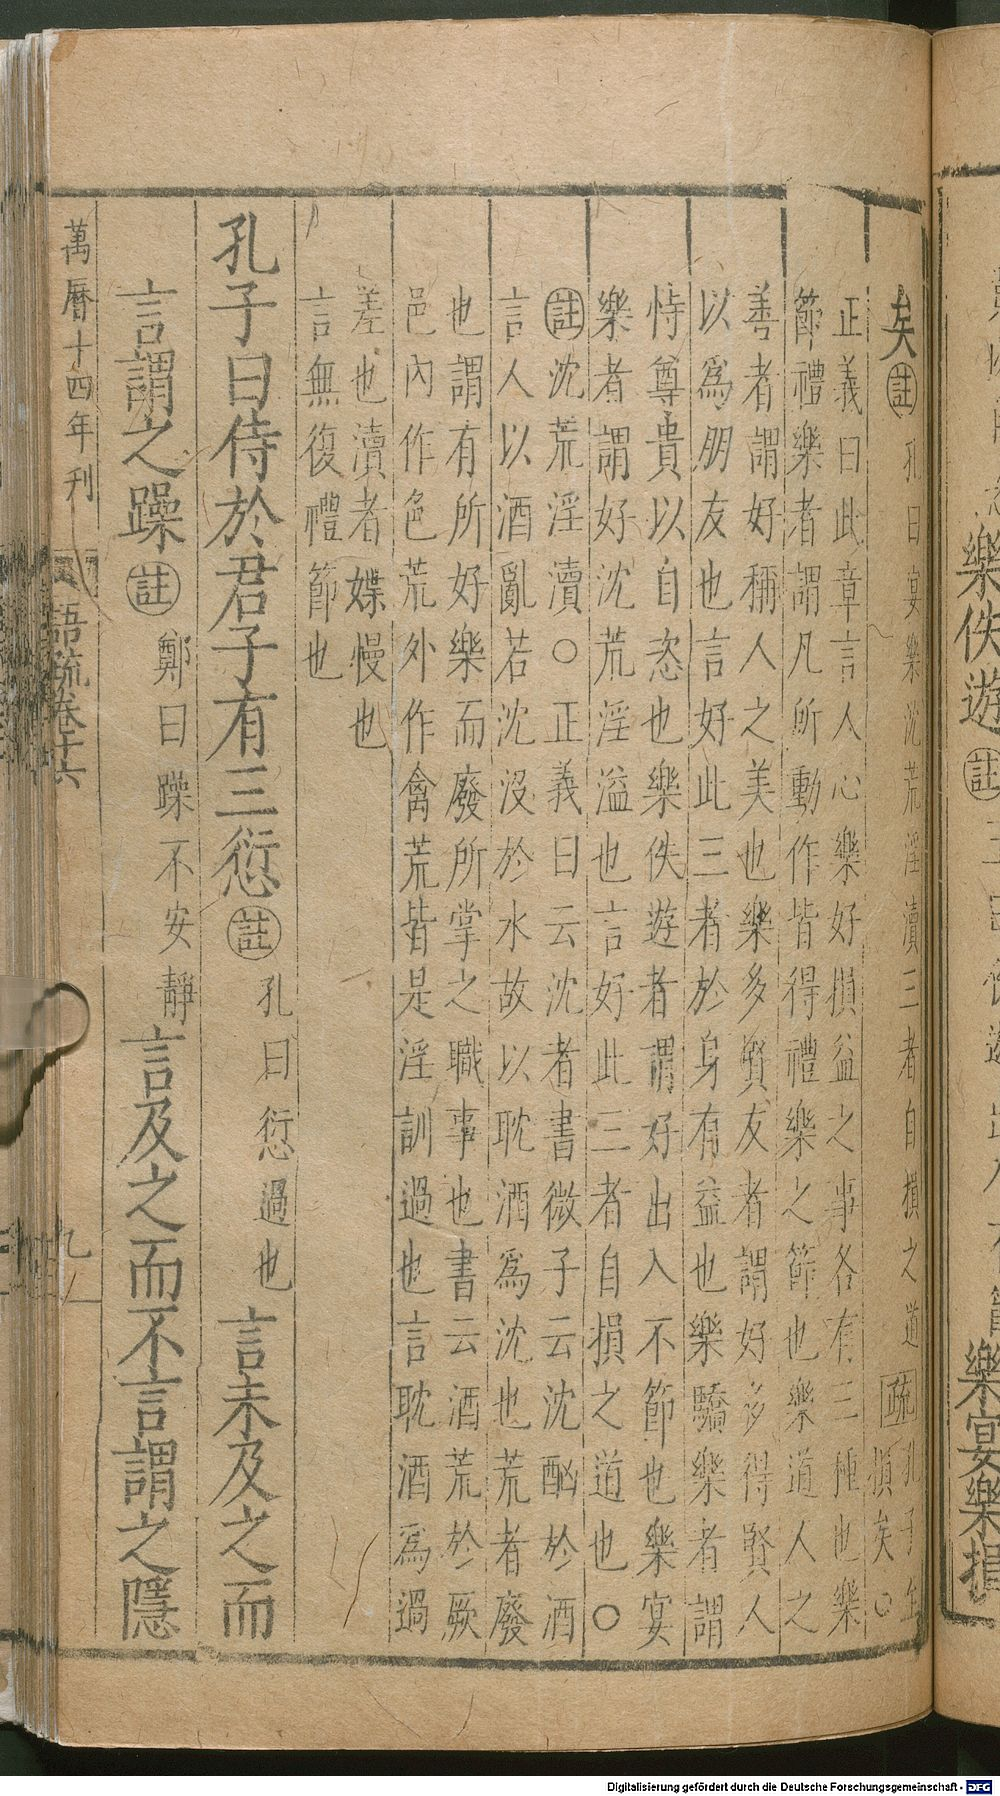 樂佚遊註
樂宴樂損
矣註孔曰宴樂沈荒淫瀆三者自損之道疏孔子至
損矣○
正義曰此章言人心樂好損益之事各有三種也樂
節禮樂者謂凡所動作皆得禮樂之節也樂道人之
善者謂好稱人之美也樂多賢友者謂好多得賢人
以爲朋友也言好此三者於身有益也樂驕樂者謂
恃尊貴以自恣也樂佚遊者謂好出入不節也樂宴
樂者謂好沈荒淫溢也言好此三者自損之道也○
註沈荒淫瀆○正義曰云沈者書微子云沈酗於酒
言人以酒亂若沈沒於水故以耽酒爲沈也荒者廢
也謂有所好樂而廢所掌之職事也書云酒荒於厥
邑內作色荒外作禽荒皆是淫訓過也言耽酒爲過
差也瀆者媟慢也
言無復禮節也
孔子曰侍於君子有三愆註孔曰愆過也言未及之而
言謂之躁註鄭曰躁不安靜言及之而不言謂之隱
萬曆十四年刊 語疏卷十六 九
Digitalisierung gefördert durch die Deutsche Forschungsgemeinschaft - DFG